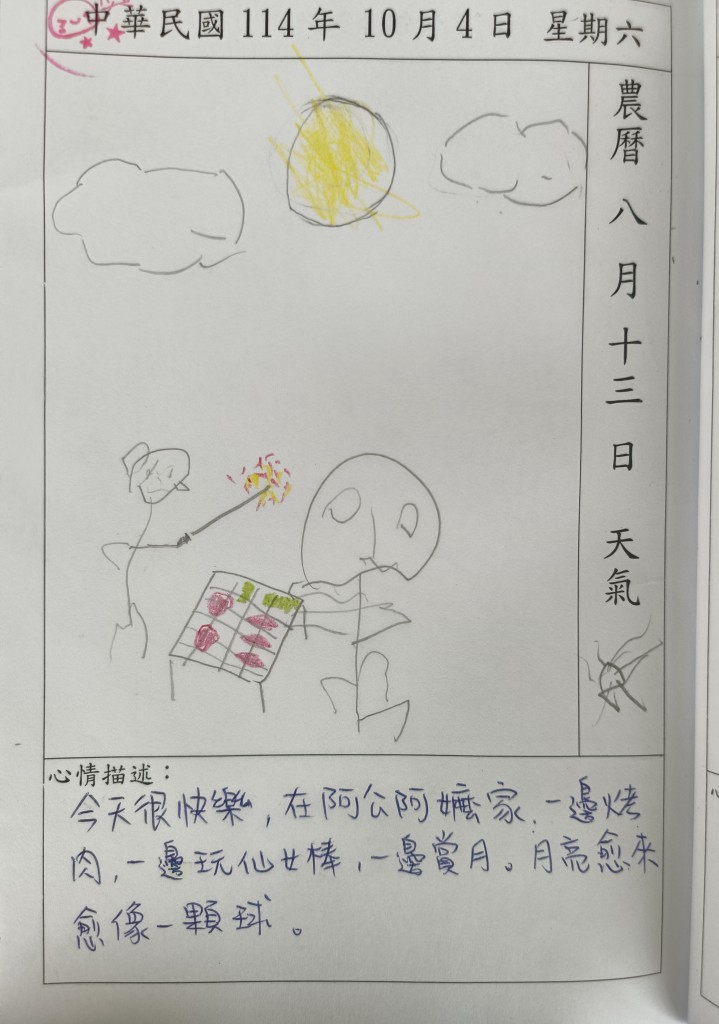 中華民國 114 年 10 月 4 日 星期六
農曆 八 月 十三 日 天氣
心情描述：
今天很快樂，在阿公阿嬤家，一邊烤
肉，一邊玩仙女棒，一邊賞月。月亮愈來
愈像一顆球。